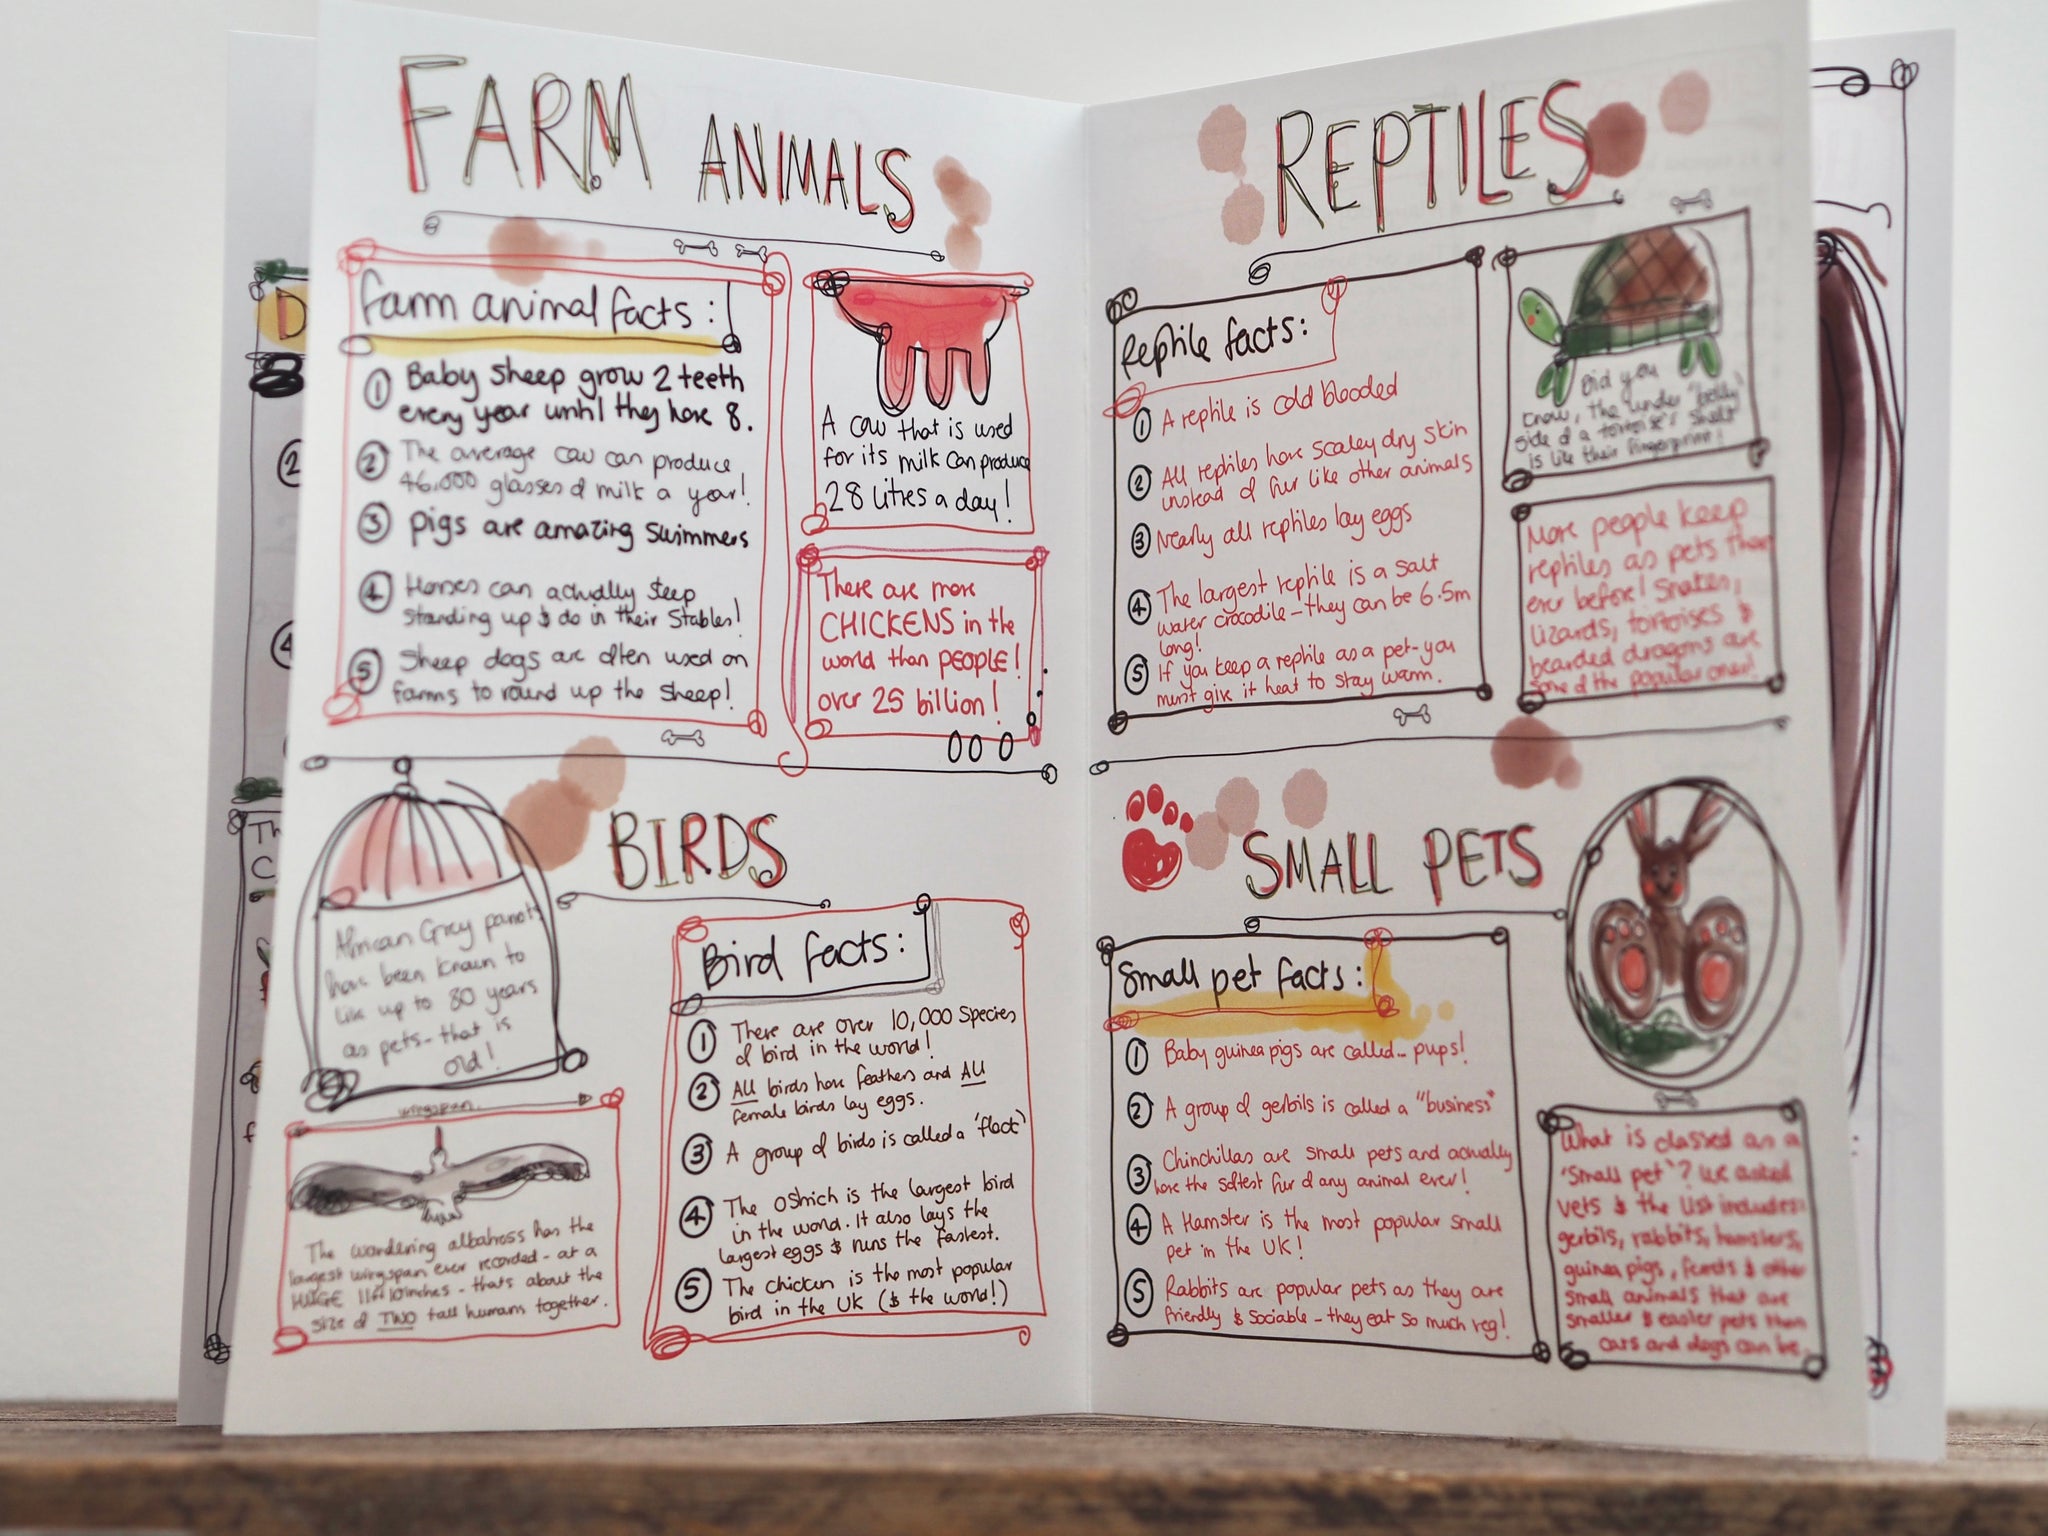 FARM ANIMALS
farm animal facts:
1 Baby sheep grow 2 teeth
every year until they have 8.
2 The average cow can produce
46,000 glasses of milk a year!
3 pigs are amazing swimmers
4 Horses can actually sleep
standing up & do in their stables!
5 Sheep dogs are often used on
farms to round up the sheep!
A cow that is used
for its milk can produce
28 litres a day!
There are more
CHICKENS in the
world than PEOPLE!
over 25 billion!
BIRDS
African Grey parrots
have been known to
live up to 80 years
as pets - that is
old!
wingspan.
The wandering albatross has the
largest wingspan ever recorded - at a
HUGE 11ft 10inches - thats about the
size of TWO tall humans together.
Bird facts:
1 There are over 10,000 species
of bird in the world!
2 ALL birds have feathers and ALL
female birds lay eggs.
3 A group of birds is called a 'flock'
4 The ostrich is the largest bird
in the world. It also lays the
largest eggs & runs the fastest.
5 The chicken is the most popular
bird in the UK (& the world!)
REPTILES
Reptile facts:
1 A reptile is cold blooded
2 All reptiles have scaley dry skin
instead of fur like other animals
3 Nearly all reptiles lay eggs
4 The largest reptile is a salt
water crocodile - they can be 6.5m
long!
5 If you keep a reptile as a pet - you
must give it heat to stay warm.
Did you
know, the under 'belly'
side of a tortoise's shell
is like their fingerprint!
More people keep
reptiles as pets than
ever before! Snakes,
lizards, tortoises &
bearded dragons are
some of the popular ones!
SMALL PETS
Small pet facts:
1 Baby guinea pigs are called... pups!
2 A group of gerbils is called a "business"
3 Chinchillas are small pets and actually
have the softest fur of any animal ever!
4 A Hamster is the most popular small
pet in the UK!
5 Rabbits are popular pets as they are
friendly & sociable - they eat so much veg!
What is classed as a
'small pet'? We asked
vets & the list includes:
gerbils, rabbits, hamsters,
guinea pigs, ferrets & other
small animals that are
smaller & easier pets than
cats and dogs can be.
D
2
4
Th
C